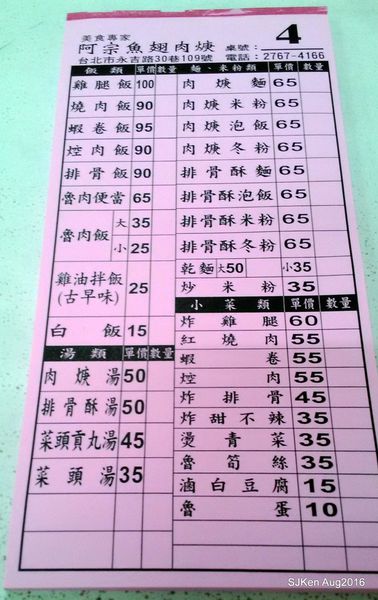 美食專家
阿宗魚翅肉焿 桌號: 4
台北市永吉路30巷109號 電話:2767-4166
飯類 單價 數量
雞腿飯 100
燒肉飯 90
蝦卷飯 95
焢肉飯 90
排骨飯 90
魯肉便當 65
魯肉飯 大 35
小 25
雞油拌飯 25
(古早味)
白飯 15
湯類 單價 數量
肉焿湯 50
排骨酥湯 50
菜頭貢丸湯 45
菜頭湯 35
麵、米粉類 單價 數量
肉焿麵 65
肉焿米粉 65
肉焿泡飯 65
肉焿冬粉 65
排骨酥麵 65
排骨酥泡飯 65
排骨酥米粉 65
排骨酥冬粉 65
乾麵 大50 小35
炒米粉 35
小菜類 單價 數量
炸雞腿 60
紅燒肉 55
蝦卷 55
焢肉 55
炸排骨 45
炸甜不辣 35
燙青菜 35
魯筍絲 35
滷白豆腐 15
魯蛋 10
SJKen Aug2016